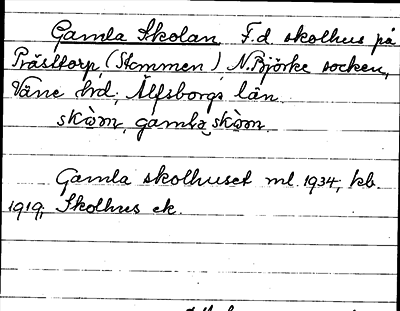 Gamla Skolan F.d. skolhus på
Prästtorp, (Stommen) N. Björke socken,
Väne hrd; Älfsborgs län.
skòm, gamla skòm.
Gamla skolhuset ml. 1934; kb.
1919; Skolhus ek.